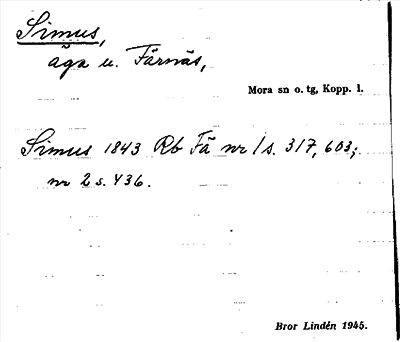 Simus,
äga u. Färnäs,
Mora sn o. tg, Kopp. l.
Simus 1843 Rb Fä nr 1 s. 317, 603;
nr 2 s. 436.
Bror Lindén 1945.